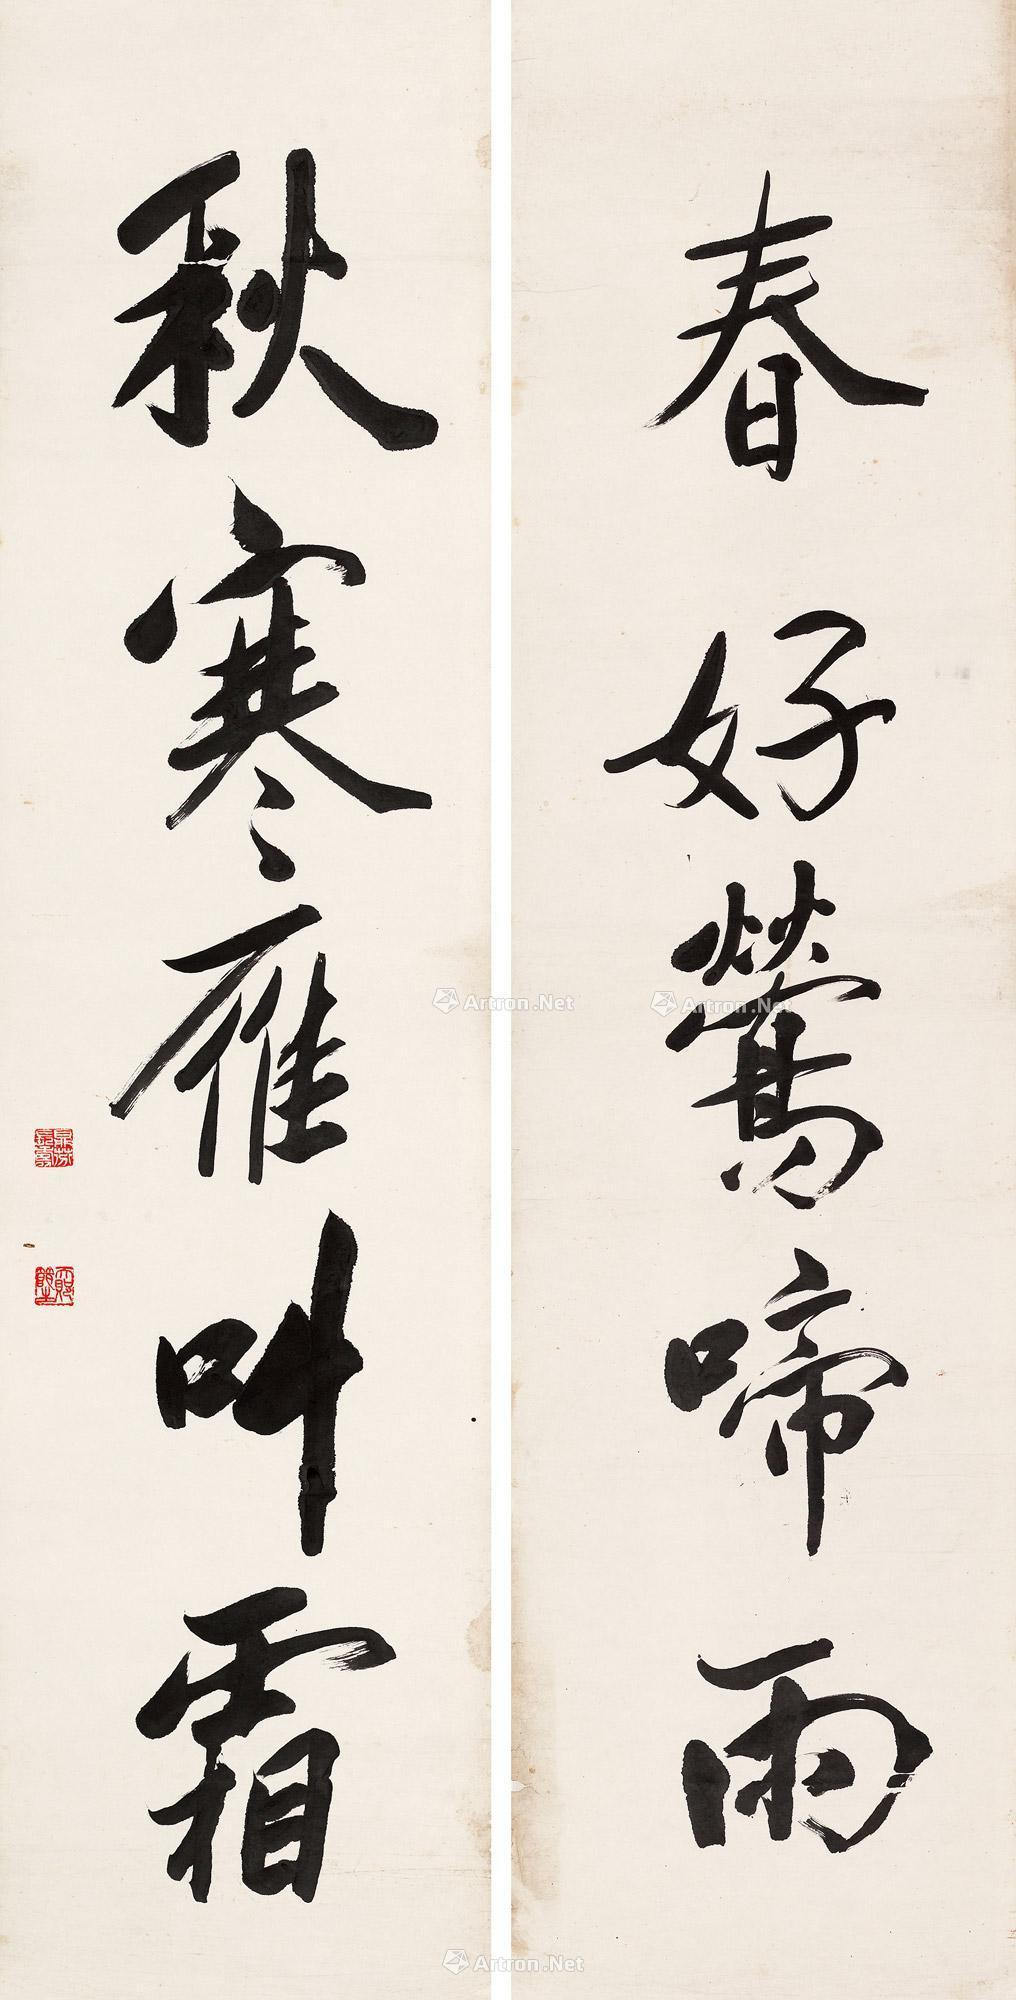 春好鶯啼雨
秋寒雁叫霜
Artron.Net
Artron.Net
Artron.Net